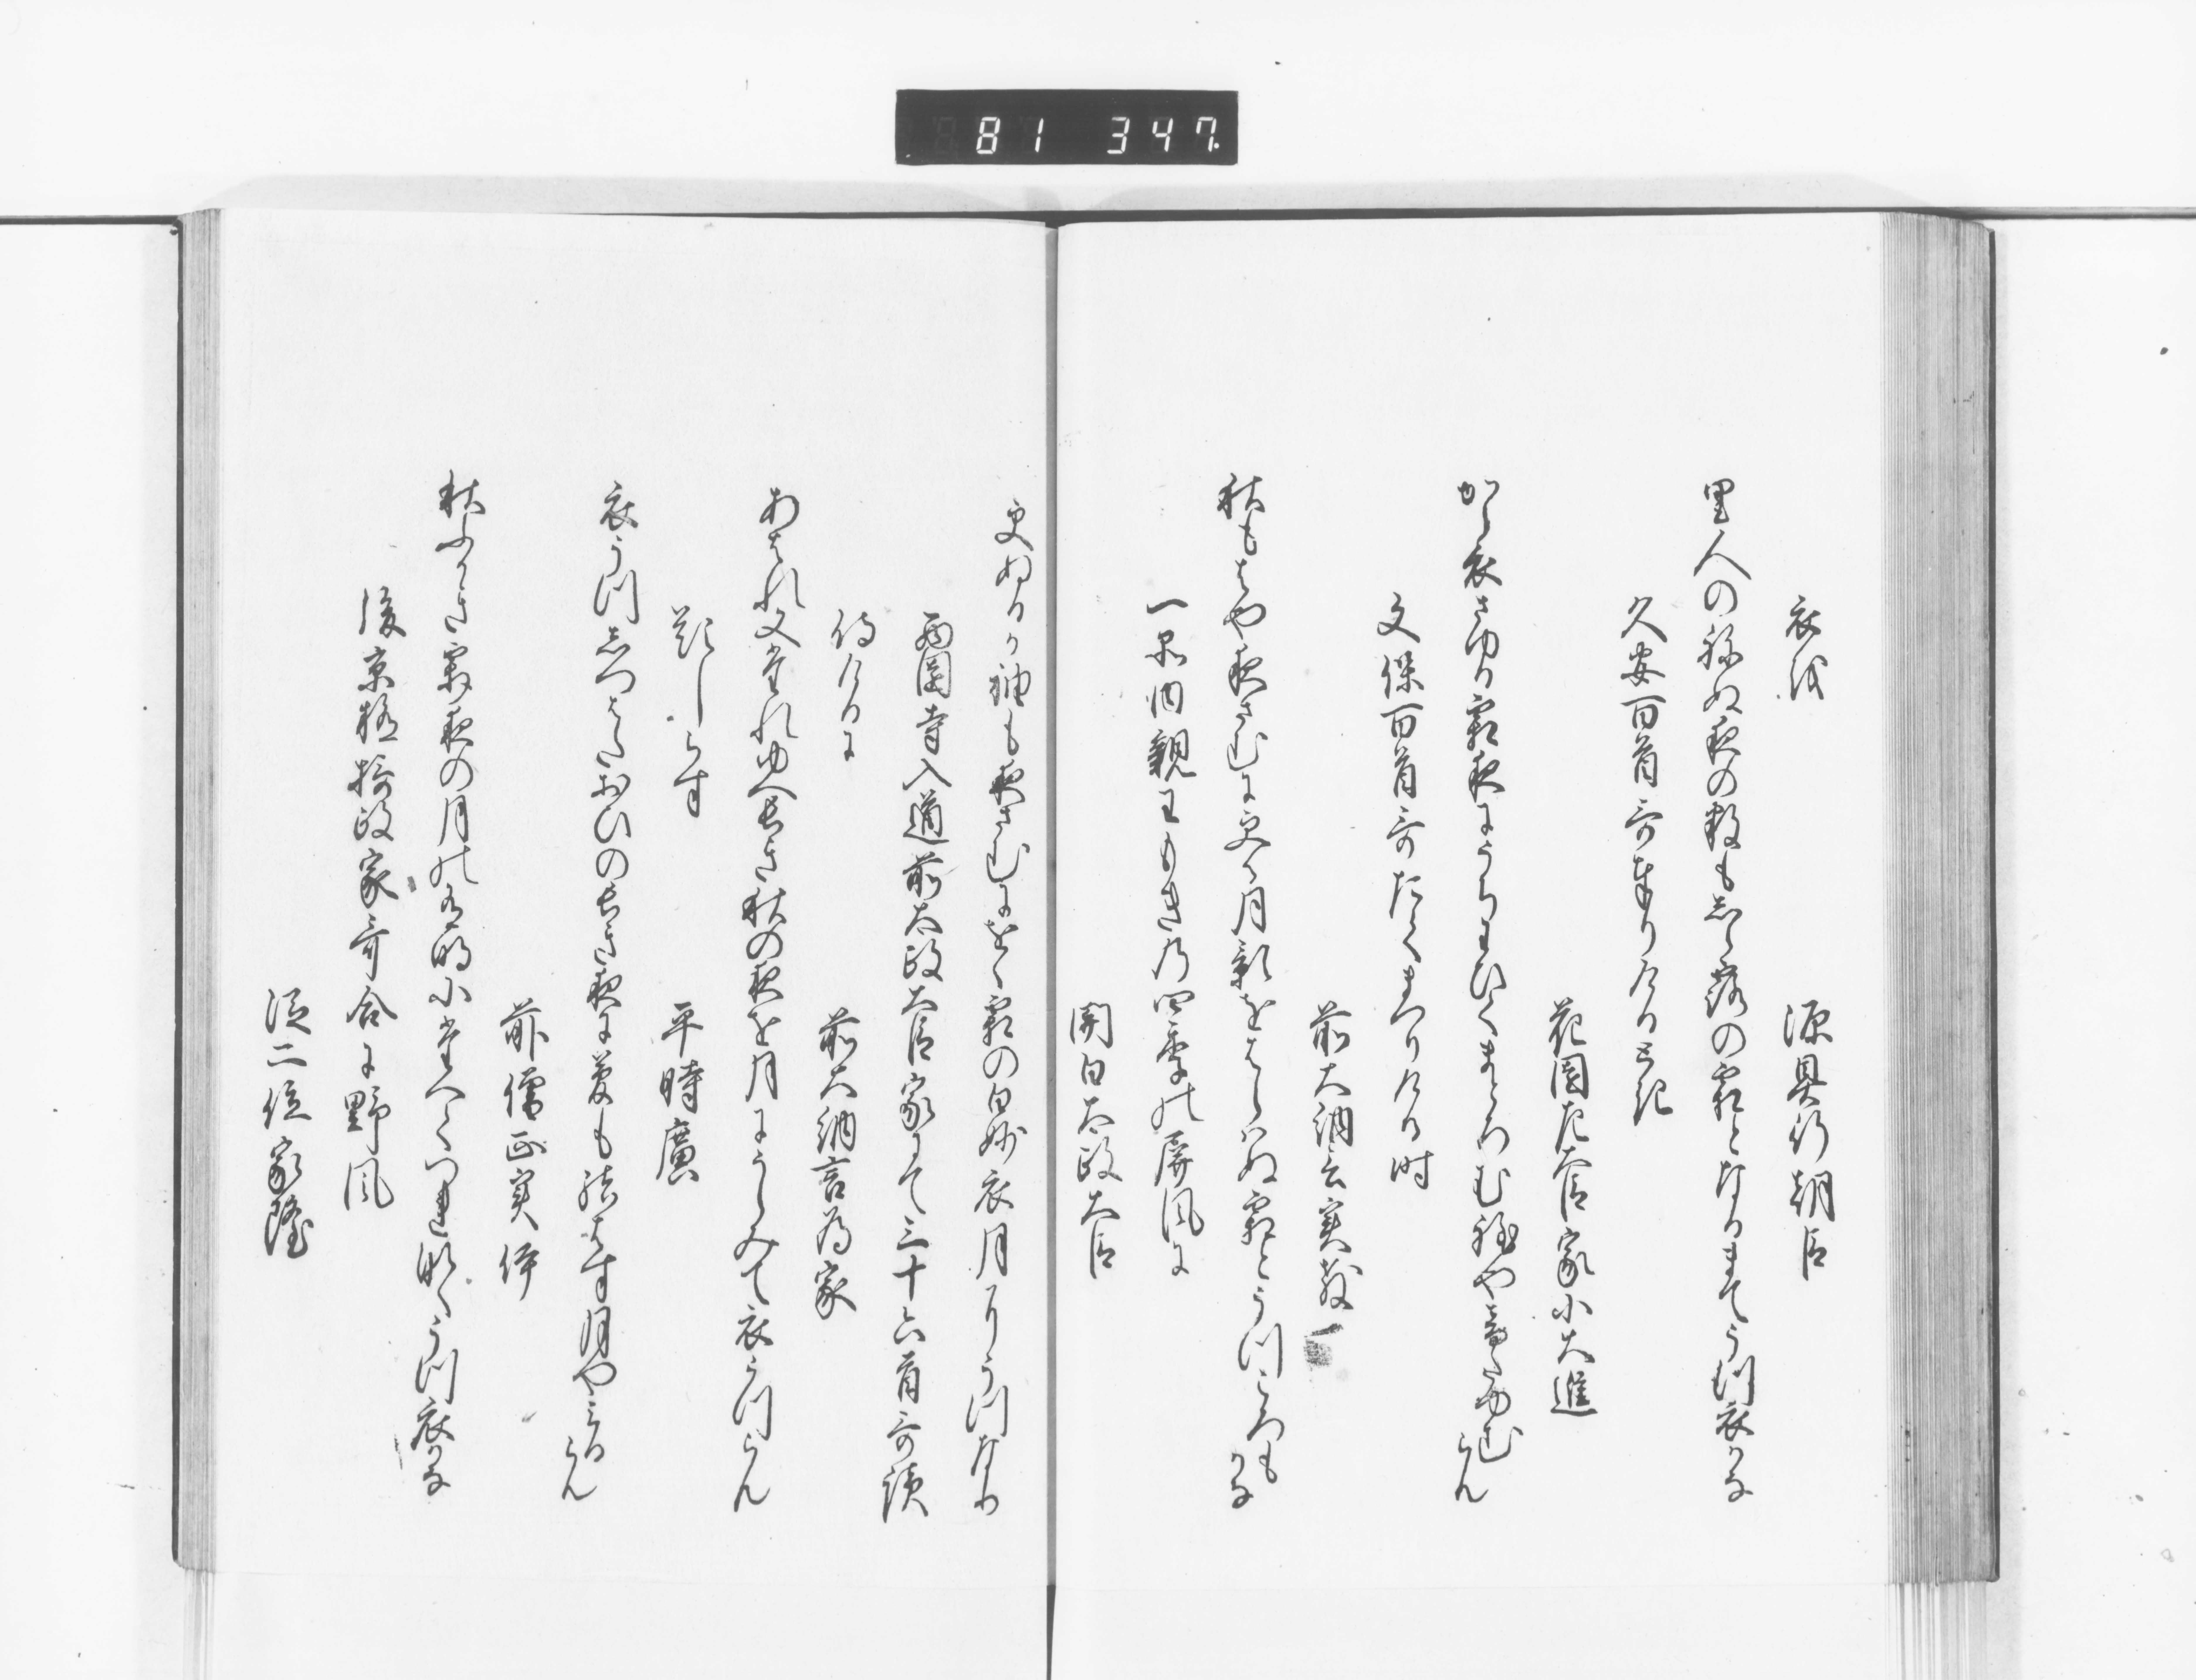 81 347.
衣を
源具行朝臣
里人のねぬ夜の数もしら露の霜となるまてうつ衣かな
久安百首哥奉りける時
花園左大臣家小大進
から衣さゆる霜夜にうちわひてまとろむ程や音たゆむらん
文保百首哥たてまつりける時
前大納言実教
秋もはや夜さむに更る月影をはらはぬ霜とうつころもかな
一品内親王もきの四季の屏風に
関白太政大臣
更ぬるか袖も夜さむにをく霜の白妙衣月にうつなり
西園寺入道前太政大臣家にて三十六首哥読
侍けるに
前大納言為家
あはれ又たれゆへ長き秋の夜を月にうらみて衣うつらん
題しらす
平時廣
衣うつしつはたおひの長き夜に夢も結はす月やみるらん
前僧正実伊
秋ふかき霜夜の月の有明にたへてつれなくうつ衣かな
後京極摂政家哥合に野風
従二位家隆